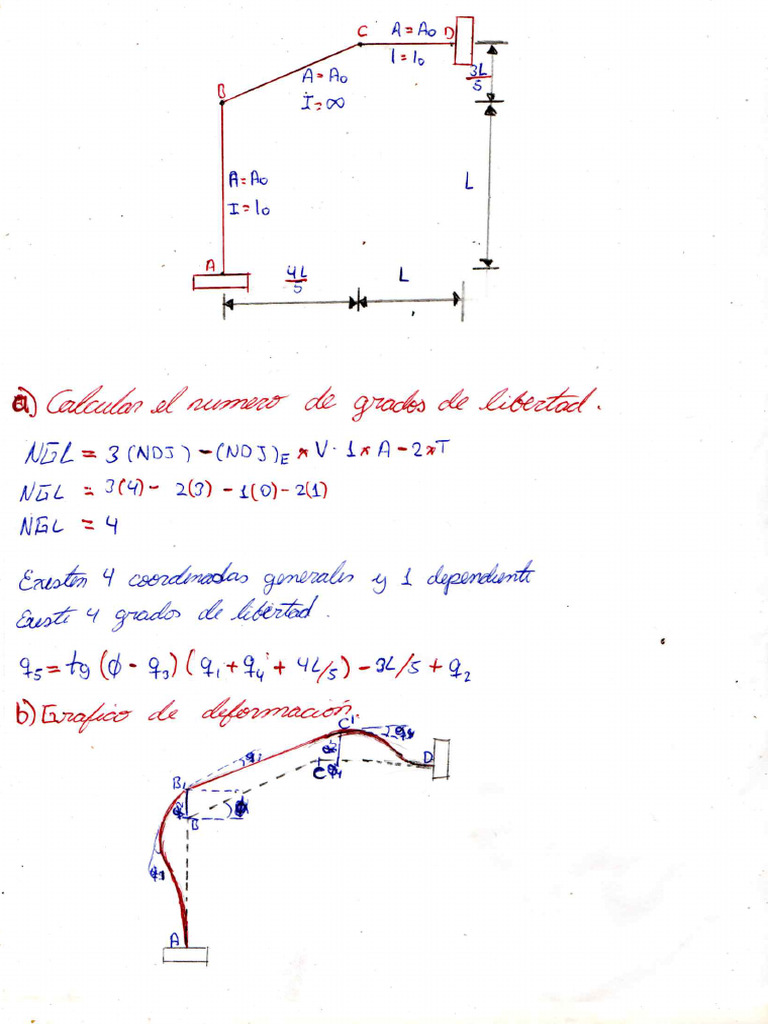 C A = A0 D
I = I0
3L/5
A = A0
I = ∞
B
L
A = A0
I = I0
A
4L/5 L
a) Calcular el numero de grados de libertad.
NGL = 3(NDJ) - (NDJ)E * V - 1 * A - 2 * T
NGL = 3(4) - 2(3) - 1(0) - 2(1)
NGL = 4
Existen 4 coordenadas generales y 1 dependiente
Existe 4 grados de libertad.
q5 = tg (φ - q3) (q1 + q4 + 4L/5) - 3L/5 + q2
b) Grafico de deformación.
C'
D
C
B1
B
A